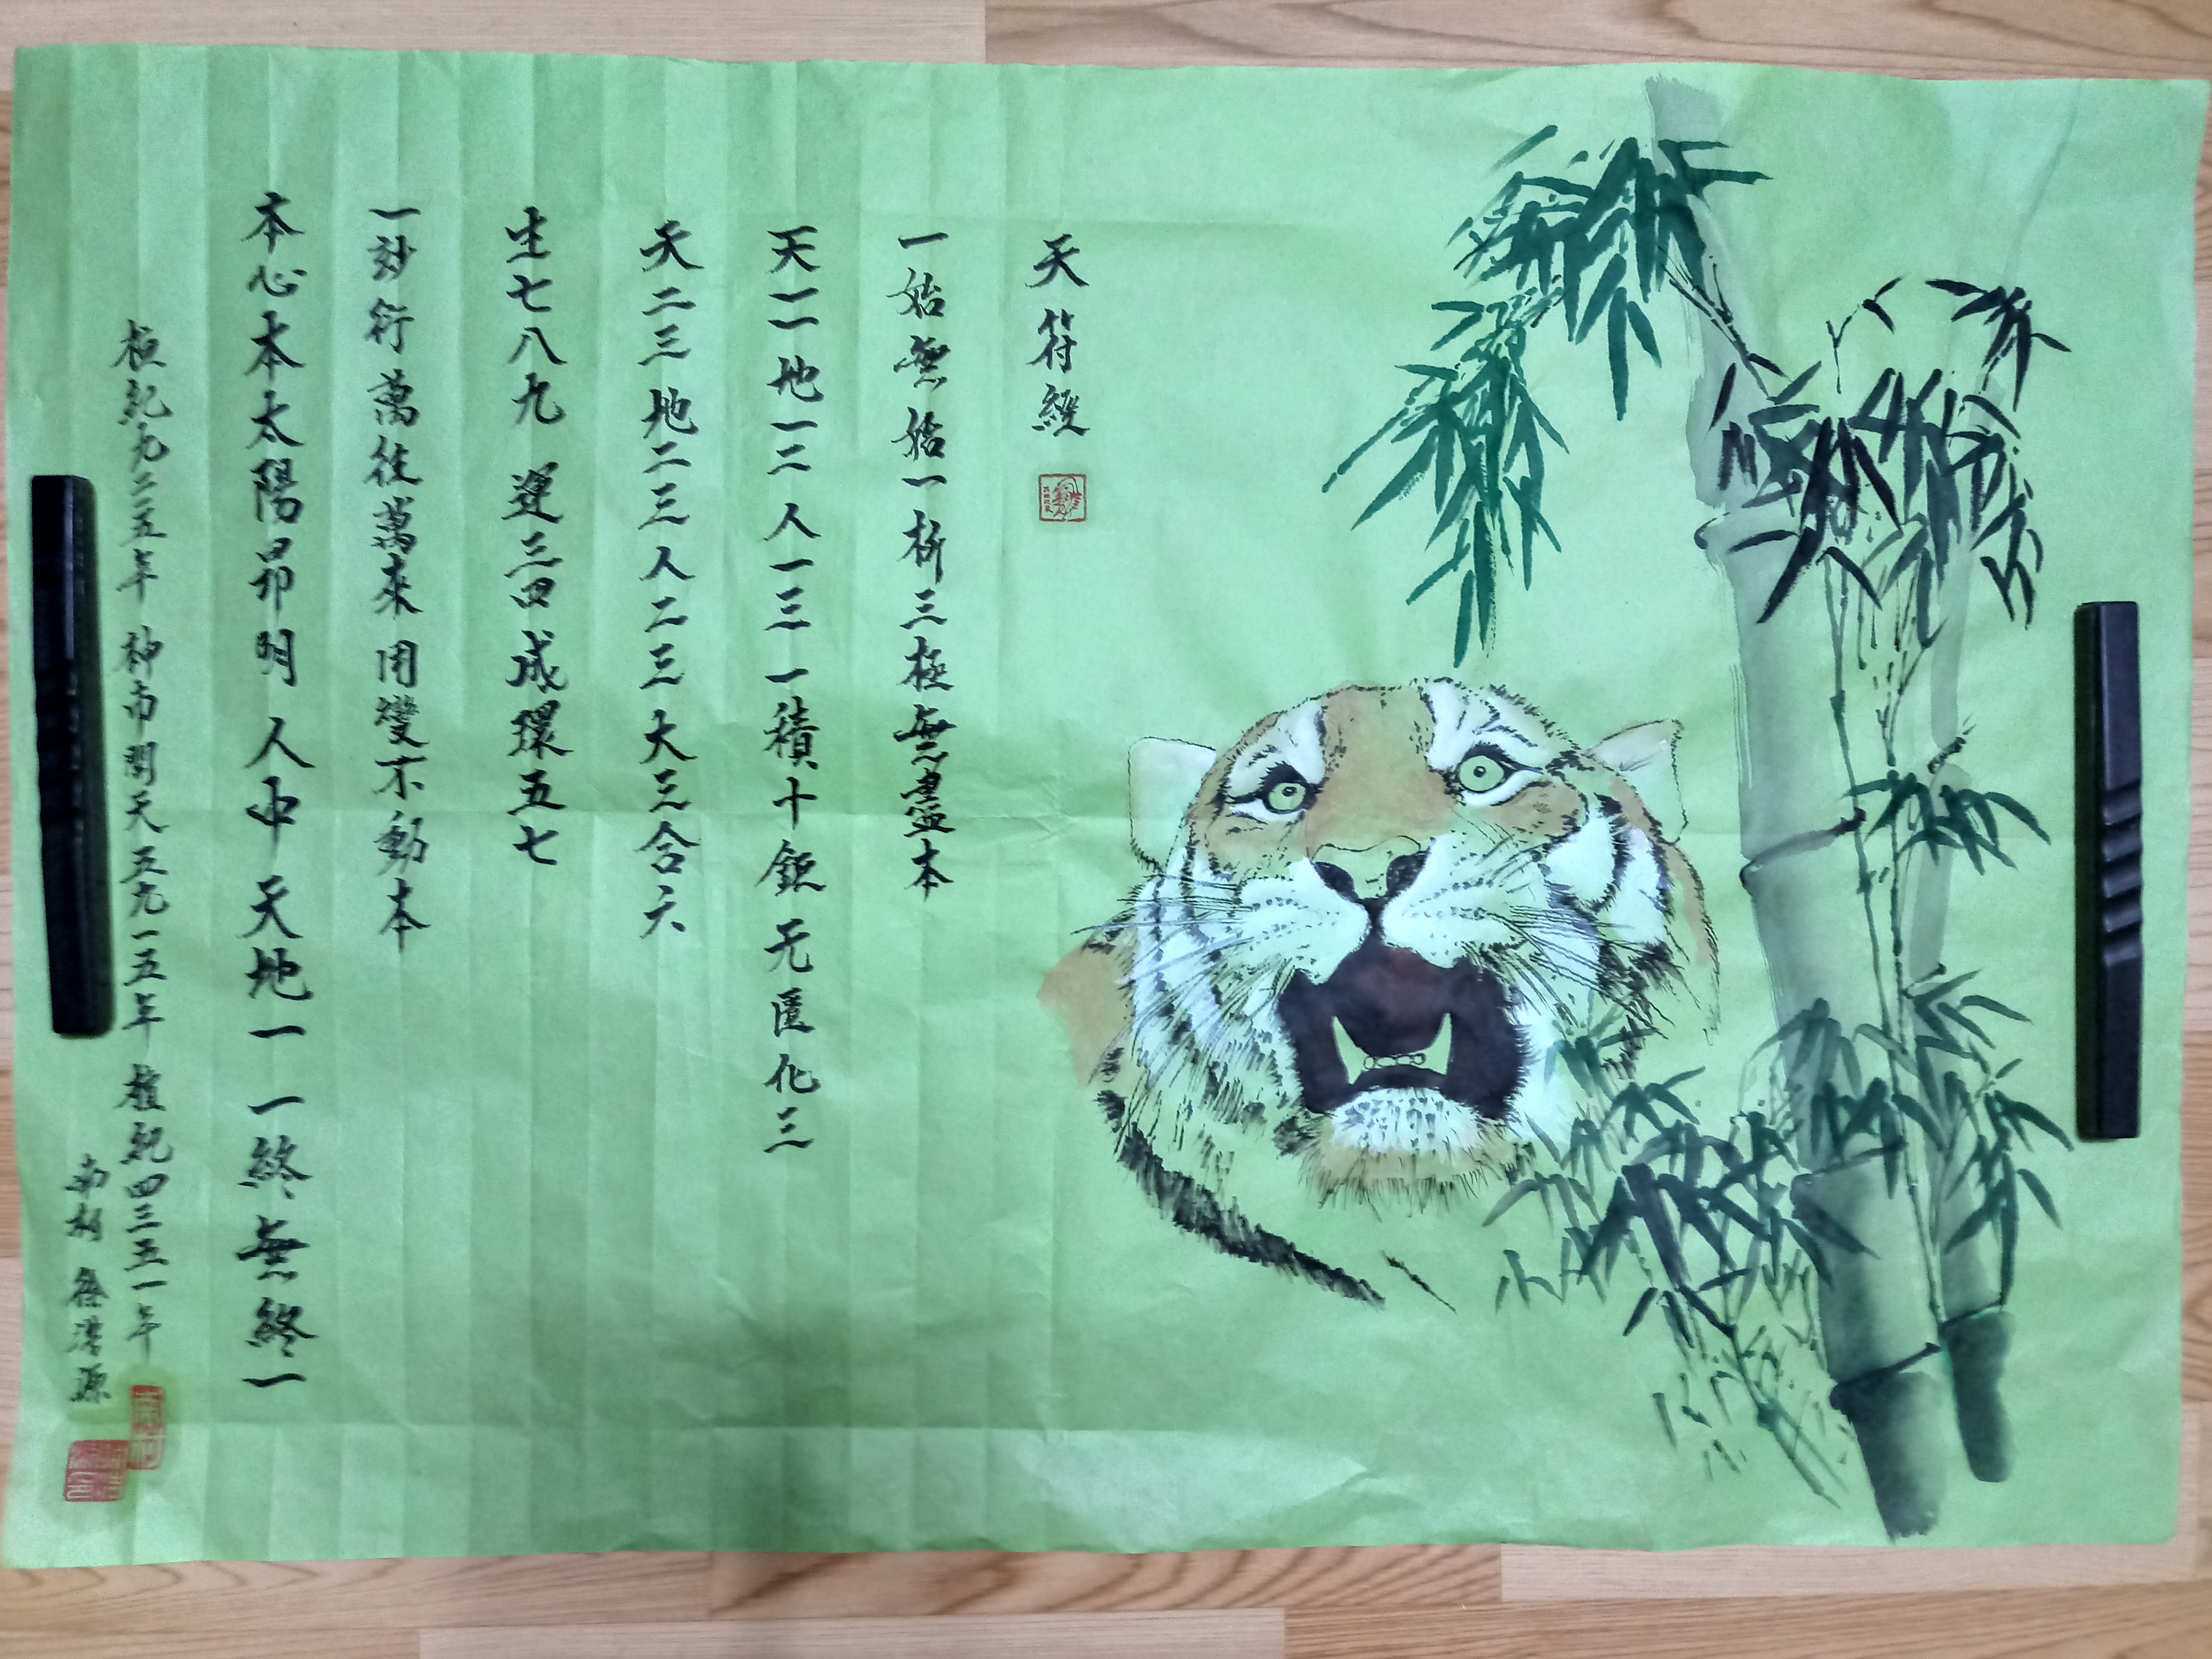 天符經
一始無始一析三極無盡本
天一一地一二人一三一積十鉅无匱化三
天二三地二三人二三大三合六
生七八九 運三四成環五七
一妙衍萬往萬來用變不動本
本心本太陽昂明人中天地一一終無終一
桓紀九二一五年 神市開天五九一五年 檀紀四三五一年
徐浩源